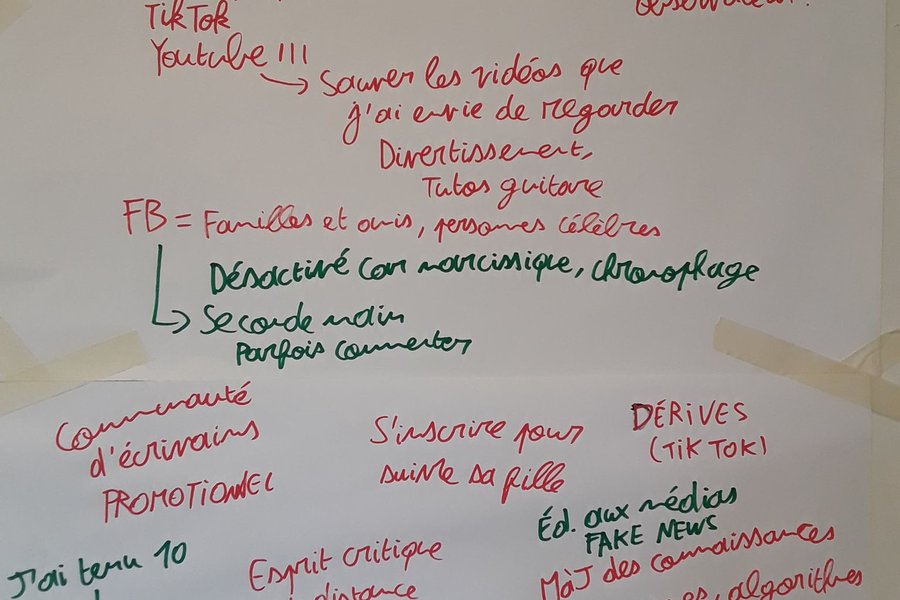 TikTok
Youtube !!!
observateur.
→ Sauver les vidéos que
j'ai envie de regarder
Divertissement,
Tutos guitare
FB = Familles et amis, personnes célèbres
Désactivé car narcissique, chronophage
→ Seconde main
Parfois commenter
Communauté
d'écrivains
PROMOTIONNEL
S'inscrire pour
suivre sa fille
DÉRIVES
(TIK TOK)
Éd. aux médias
FAKE NEWS
J'ai tenu 10
Esprit critique
distance
MàJ des connaissances
algorithmes